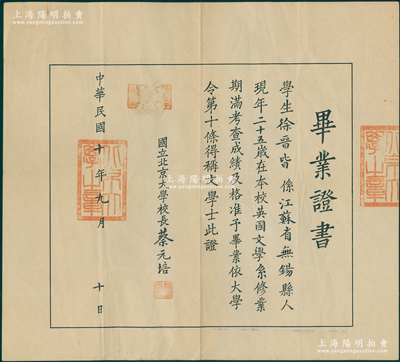 畢業證書
學生徐晋皆係江蘇省無錫縣人
現年二十五歲在本校英國文學系修業
期滿考查成績及格准予畢業依大學
令第十條得稱文學士此證
國立北京大學校長蔡元培
中華民國十年九月十日
上海陽明拍賣
www.yangmingauction.com
上海陽明拍賣
www.yangmingauction.com